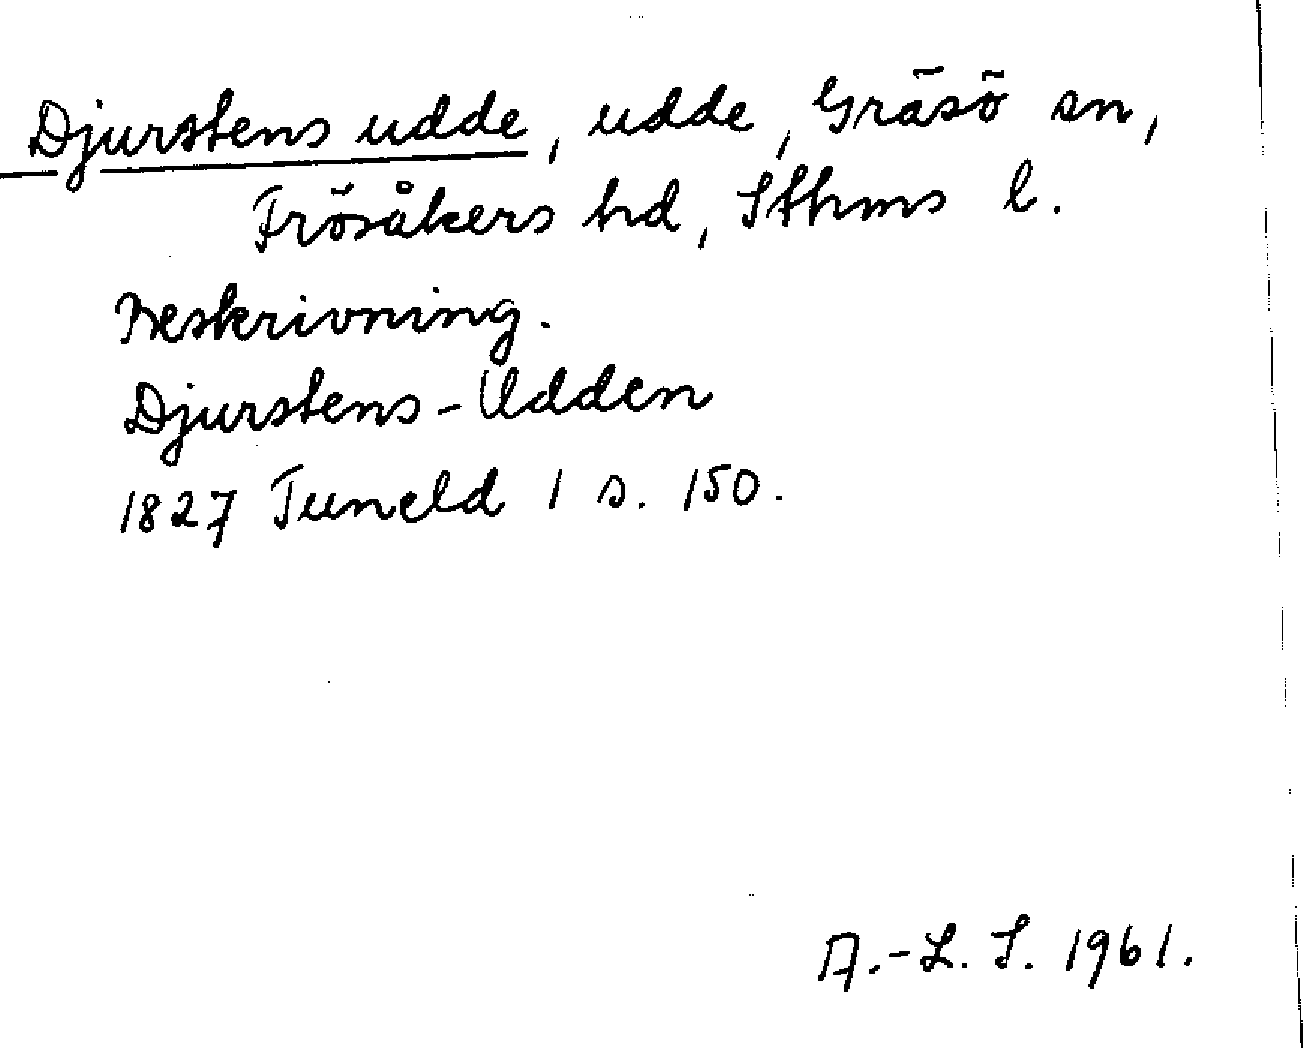 Djurstens udde, udde, Gräsö sn,
Frösåkers hd, Sthms l.
Beskrivning.
Djurstens-Udden
1827 Tuneld 1 s. 150.
A.-L. S. 1961.